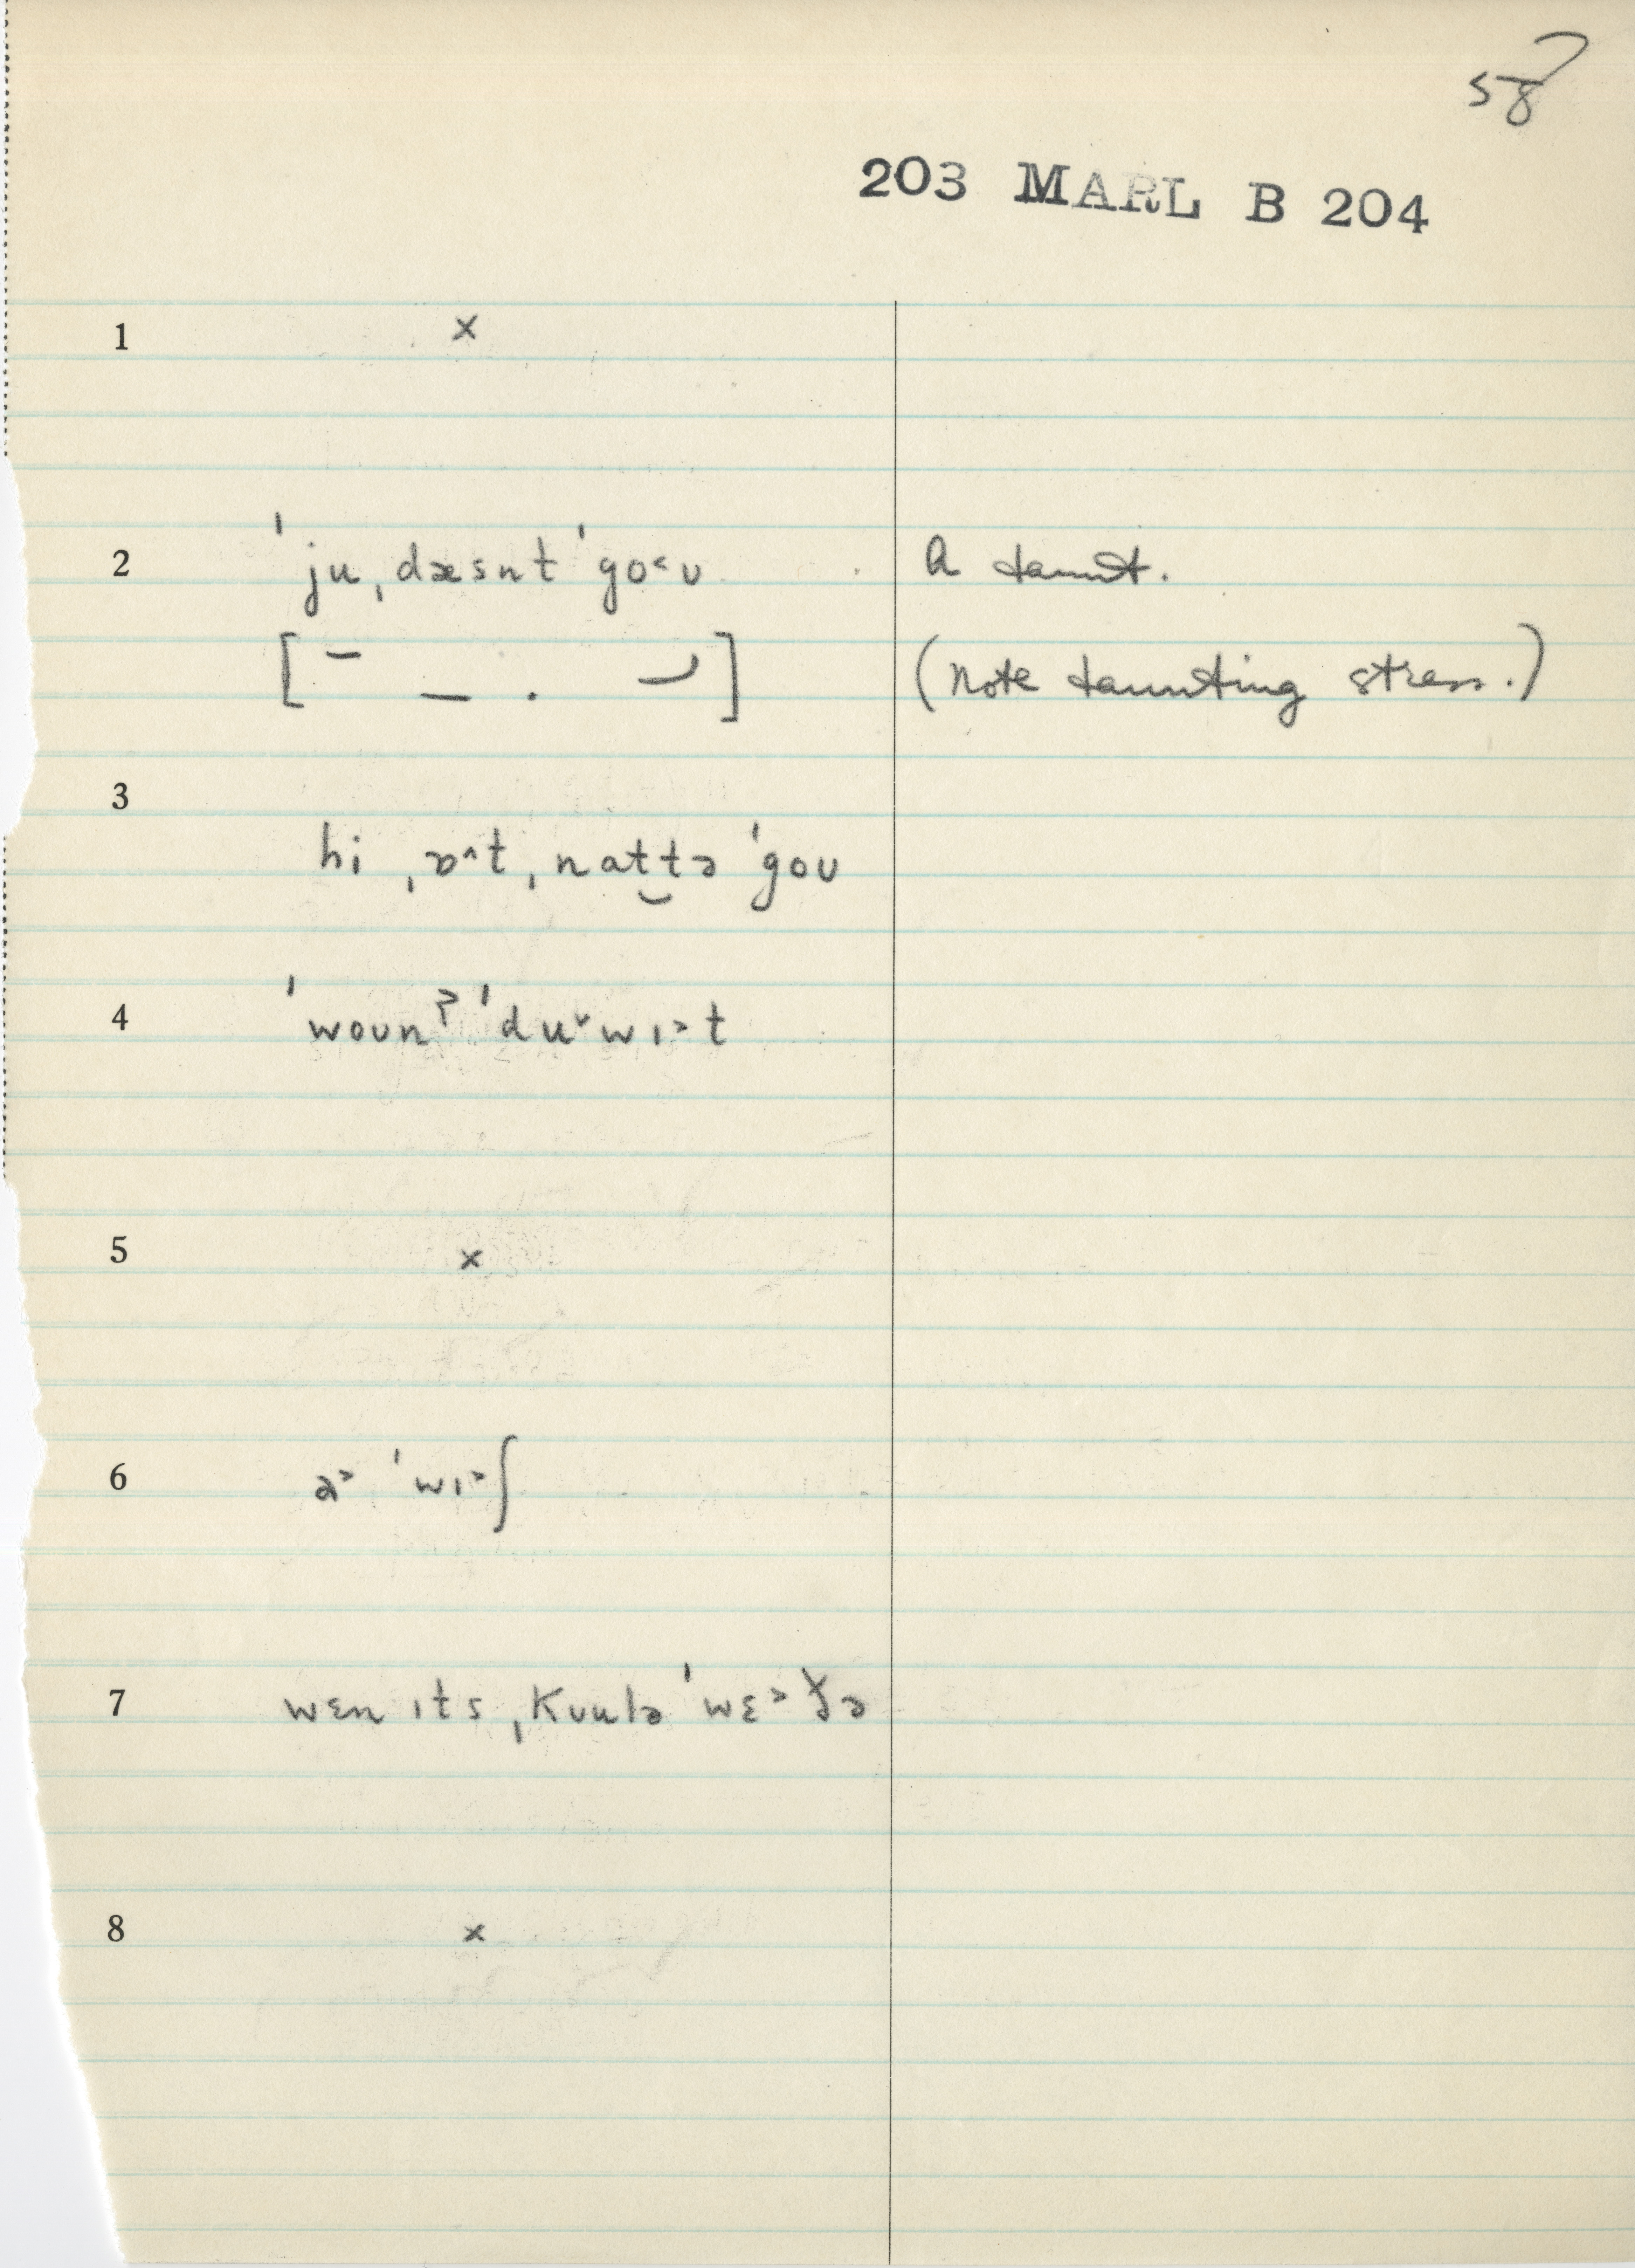 58
203 MARL B 204
1 ×
2 ˈˈju ˌdæsnt ˈgo˂ʊ A taunt.
[ ¯ _ . ⌣ ] (Note taunting stress.)
3
hi ˌɒ^t ˌnat‿tə ˈgoʊ
4 ˈˈwoʊnʔ ˈduˇwɪ˃t
5 ×
6 a˃ ˈwɪ˃ʃ
7 wɛn ɪts ˌkʊulə ˈwɛ˃ɣə
8 ×